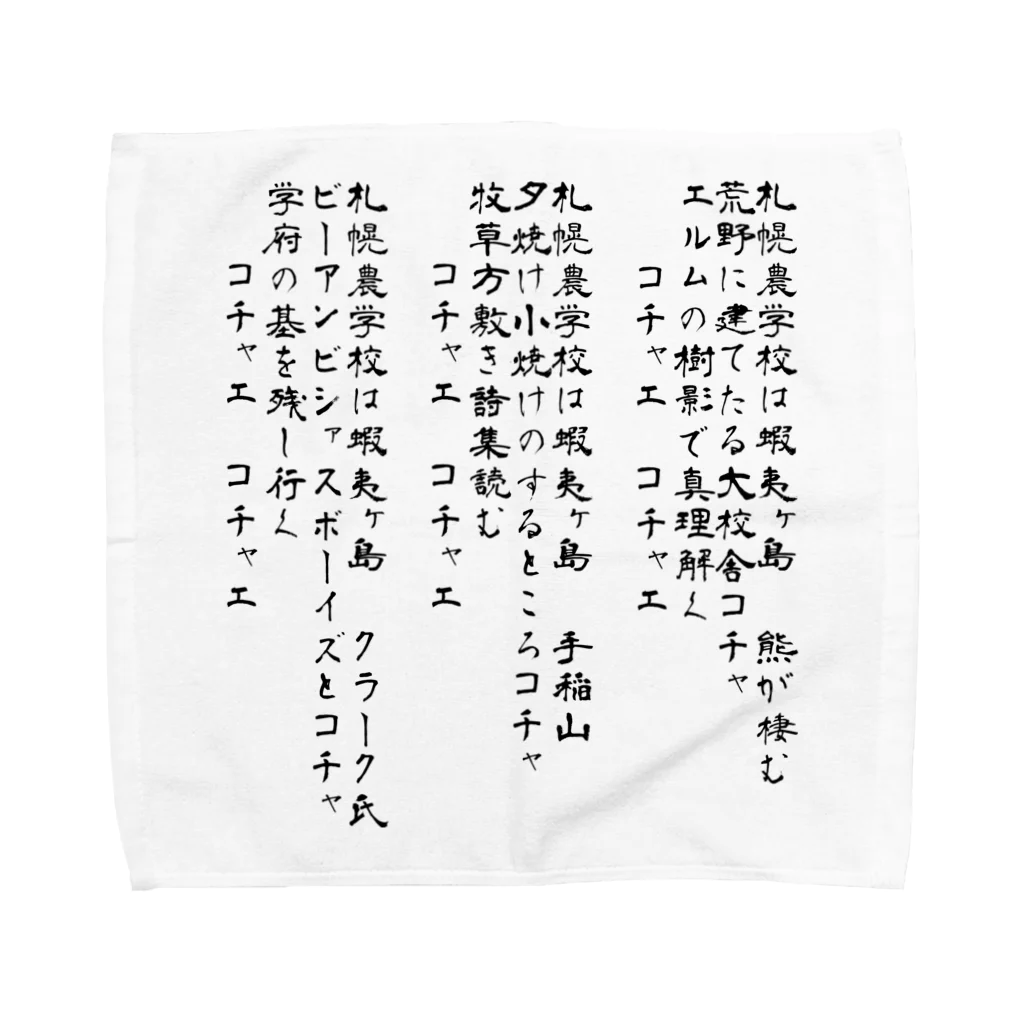 札幌農学校は蝦夷ヶ島　熊が棲む
荒野に建てたる大校舎コチャ
エルムの樹影で真理解く
コチャエ　コチャエ
札幌農学校は蝦夷ヶ島　手稲山
夕焼け小焼けのするところコチャ
牧草方敷き詩集読む
コチャエ　コチャエ
札幌農学校は蝦夷ヶ島　クラーク氏
ビーアンビシァスボーイズとコチャ
学府の基を残し行く
コチャエ　コチャエ